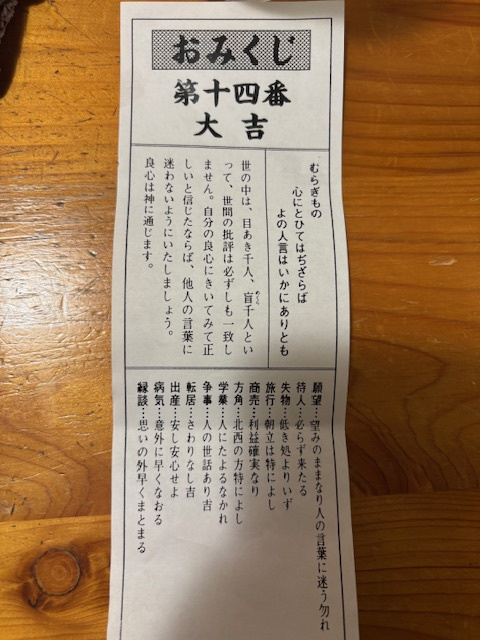 おみくじ
第十四番
大吉
むらぎもの
心にとひてはぢざらば
よの人言はいかにありとも
世の中は、目あき千人、盲千人とい
めくら
って、世間の批評は必ずしも一致し
ません。自分の良心にきいてみて正
しいと信じたならば、他人の言葉に
迷わないようにいたしましょう。
良心は神に通じます。
願望…望みのままなり人の言葉に迷う勿れ
待人…必らず来たる
失物…低き処よりいず
旅行…朝立は特によし
商売…利益確実なり
方角…北西の方特によし
学業…人にたよるなかれ
争事…人の世話あり吉
転居…さわりなし吉
出産…安し安心せよ
病気…意外に早くなおる
縁談…思いの外早くまとまる